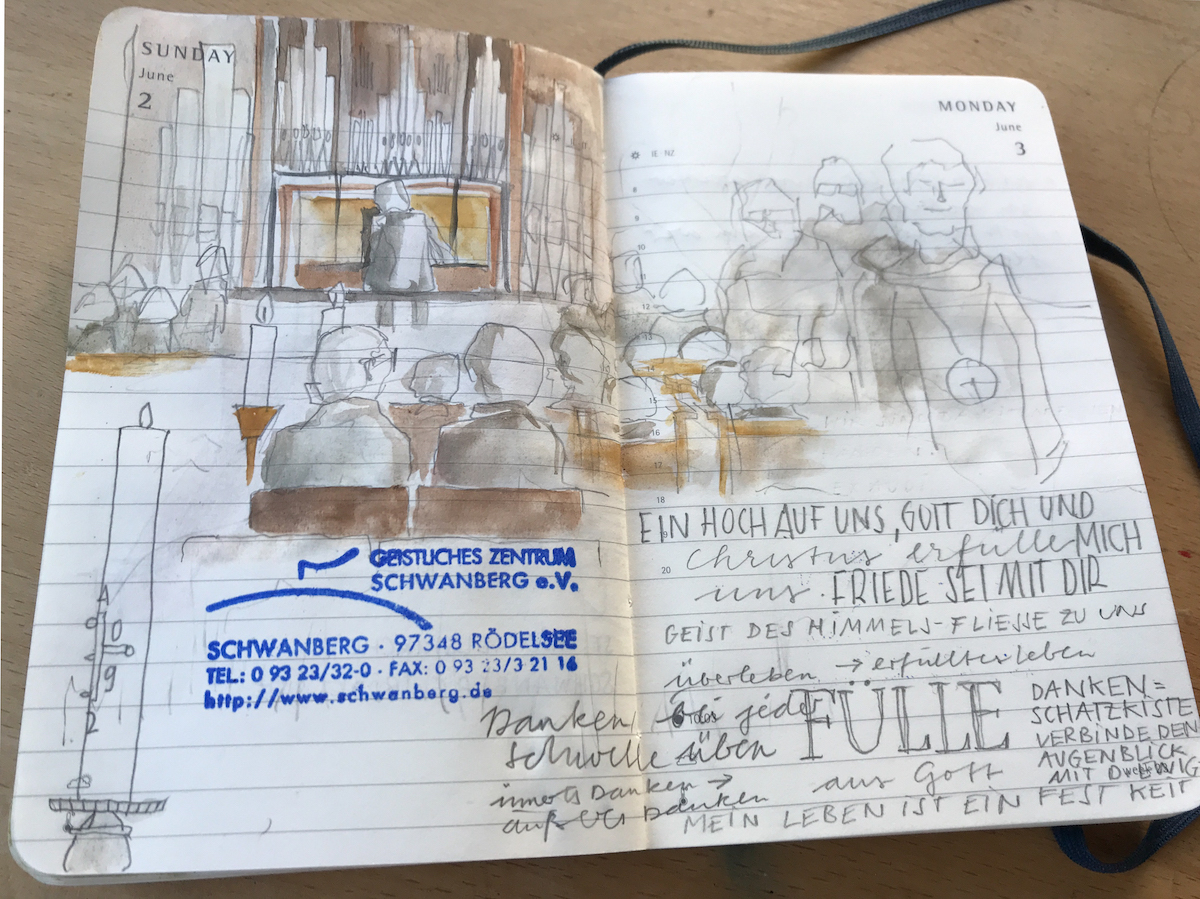 SUNDAY
June
2
GEISTLICHES ZENTRUM
SCHWANBERG e.V.
SCHWANBERG · 97348 RÖDELSEE
TEL: 0 93 23/32-0 · FAX: 0 93 23/3 21 16
http://www.schwanberg.de
MONDAY
June
3
IE · NZ
8
9
10
11
12
13
14
15
16
17
18
19
20
EIN HOCH AUF UNS, GOTT DICH UND
Christus erfülle MICH
uns. FRIEDE SEI MIT DIR
GEIST DES HIMMELS - FLIESSE ZU UNS
überleben → erfüllter leben
Danken bei jeder
Schwelle üben
FÜLLE
aus Gott
inneres Danken →
Danken
DANKEN =
SCHATZKISTE
VERBINDE DEN
AUGENBLICK
MIT D EWIG
KEIT
MEIN LEBEN IST EIN FEST